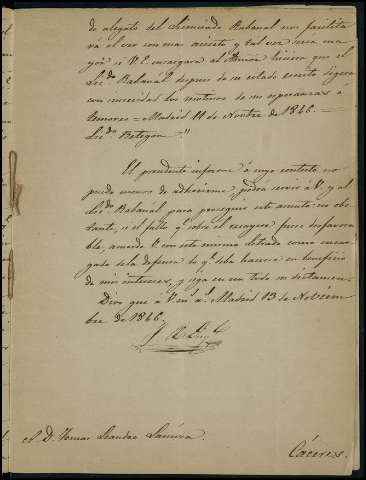 de alegato del Licenciado Rabanal nos facilita
rá el ver con mas acierto y tal vez sería me
jor si V.E. encargara al Señor hiciera que el
Lic.do Rabanal despues de su citado escrito dijera
con sencillez los motivos de sus esperanzas ó
temores = Madrid 11 de Novbre de 1846. =
Lic.do Betegon."
El prudente informe á cuyo contesto no
puedo menos de adherirme, podrá servir á V. y al
Lic.do Rabanal para proseguir este asunto: no obs
tante, si el fallo qe sobre el recayera fuere desfavora
ble, acuerde V. con este mismo letrado como encar
gado de la defensa lo qe deba hacerse en beneficio
de mis intereses, y siga en un todo su dictamen.
Dios gue á V. ms. as. Madrid 13 de Noviem
bre de 1846.
S. D. Tomas Leandro
Cáceres.